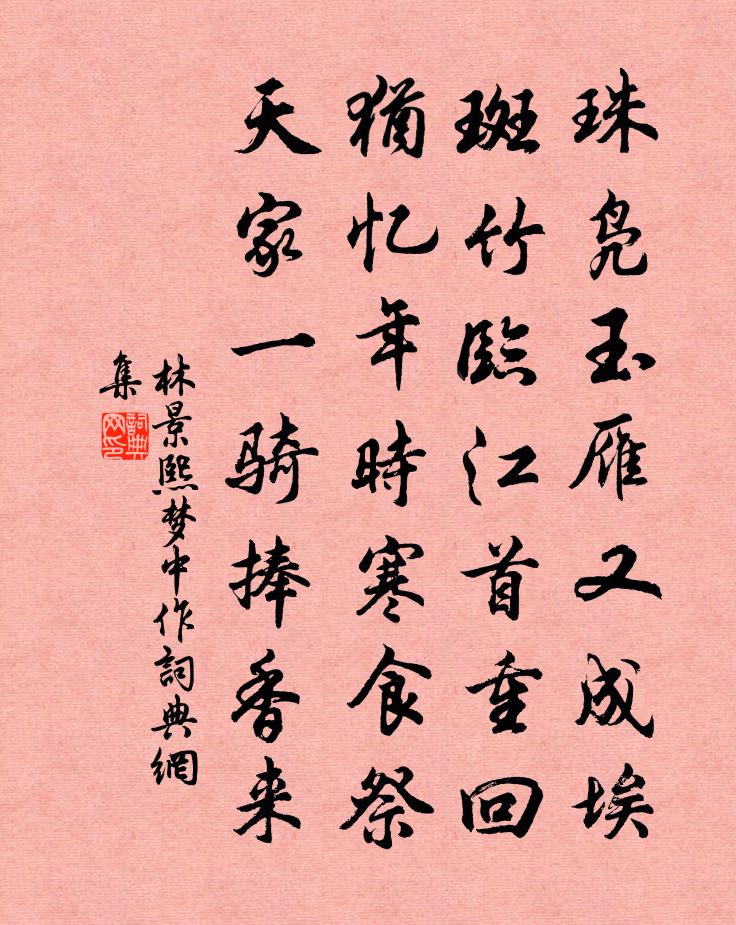 珠凫玉雁又成埃
斑竹臨江首重回
猶忆年時寒食祭
天家一骑捧香来
林景熙梦中作詞典網
集
詞典网印